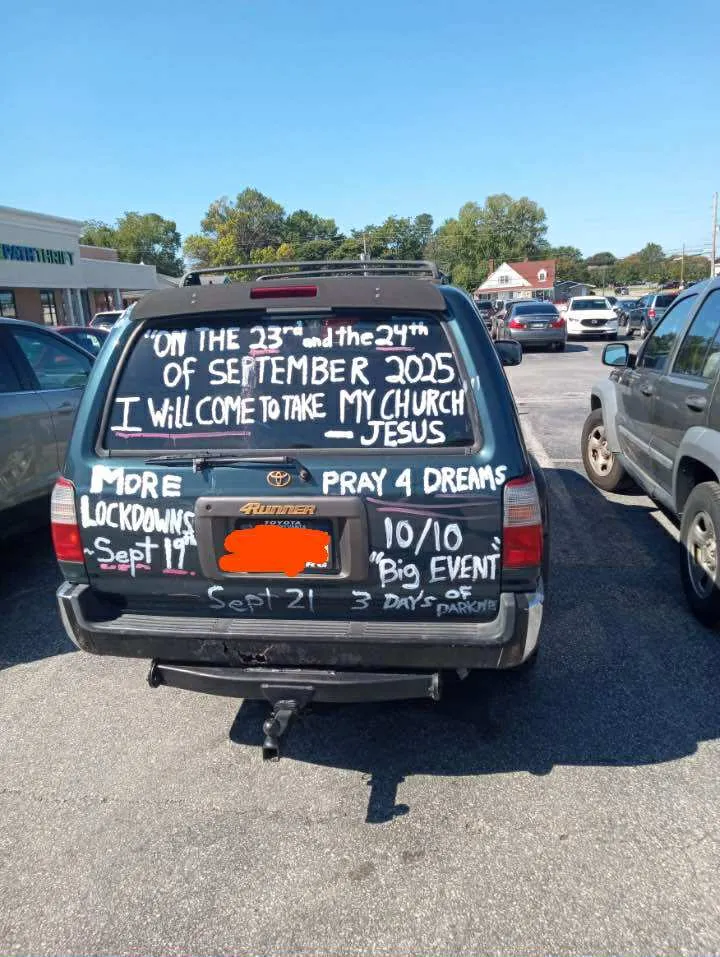 PATHTHRIFT
"ON THE 23rd and the 24th
OF SEPTEMBER 2025
I Will COME TO TAKE MY CHURCH"
— JESUS
MORE
LOCKDOWNS
~Sept 19th
PRAY 4 DREAMS
10/10
"Big EVENT"
4RUNNER
TOYOTA
Sept 21
3 DAYS OF